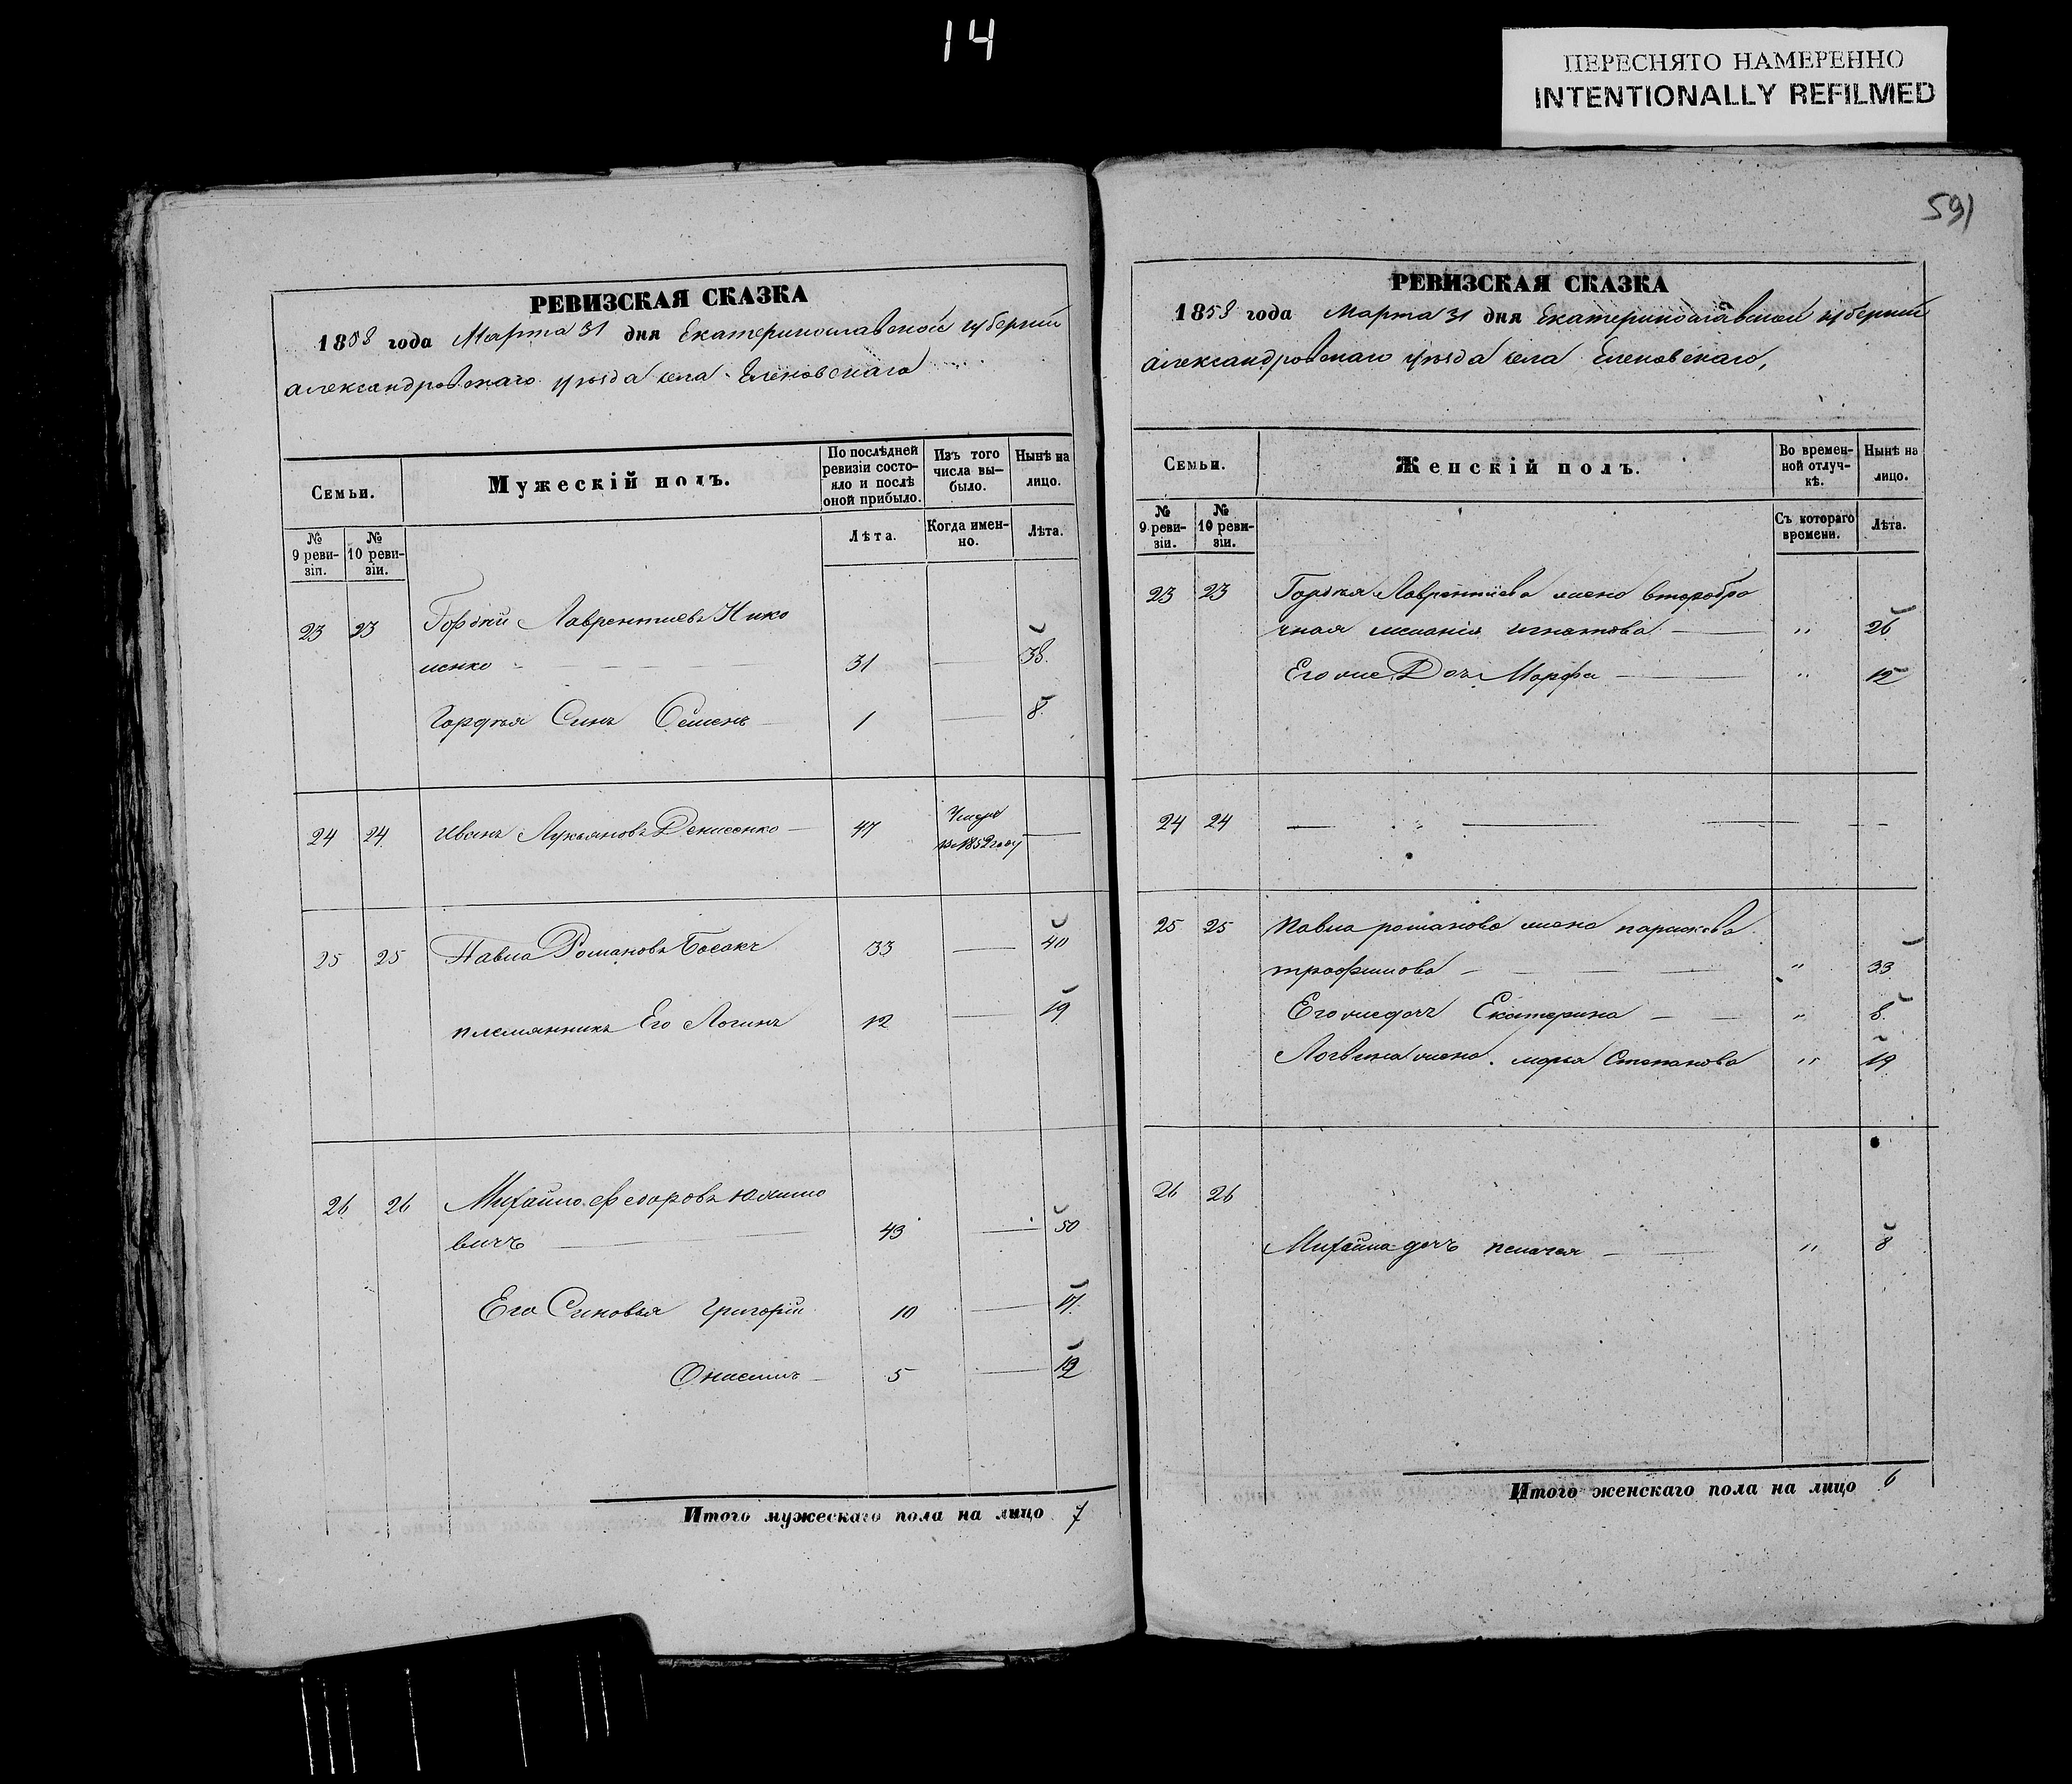 14
ПЕРЕСНЯТО НАМЕРЕННО
INTENTIONALLY REFILMED
РЕВИЗСКАЯ СКАЗКА
1858 года Марта 31 дня Екатеринославской губернии
александровскаго уѣзда села Еленовскаго
Семьи.
Мужескій полъ.
По послѣдней ревизіи состояло и послѣ оной прибыло.
Изъ того числа выбыло.
Нынѣ на лицо.
№ 9 ревизіи.
№ 10 ревизіи.
Лѣта.
Когда именно.
Лѣта.
23 23 Гордѣй Лаврентиевъ Нико
ленко 31 38
Гордѣя Синъ Семенъ 1 8
24 24 Иванъ Лукьяновъ Денисенко 47 Умеръ
въ 1852 году
25 25 Павла Романовъ Босакъ 33 40
племянникъ Его Логинъ 12 19
26 26 Михайло Федоровъ
вичъ 43 50
Его Синовья Григорій 10 17
Онисимъ 5 12
Итого мужескаго пола на лицо 7
591
РЕВИЗСКАЯ СКАЗКА
1858 года Марта 31 дня Екатеринославской губернии
александровскаго уѣзда села Еленовскаго,
Семьи.
Женскій полъ.
Во временной отлучкѣ.
Нынѣ на лицо.
№ 9 ревизіи.
№ 10 ревизіи.
Съ котораго времени.
Лѣта.
23 23 Гордѣя Лаврентиева жена второбра
чная игнатова " 26
Его же Доч Марфа " 12
24 24
25 25 Павла романова жена парскева
трофимова " 33
Его же дочь Екатерина " 8
Логвина жена марья Степанова " 19
26 26
Михайла дочь пелагея " 8
Итого женскаго пола на лицо 6